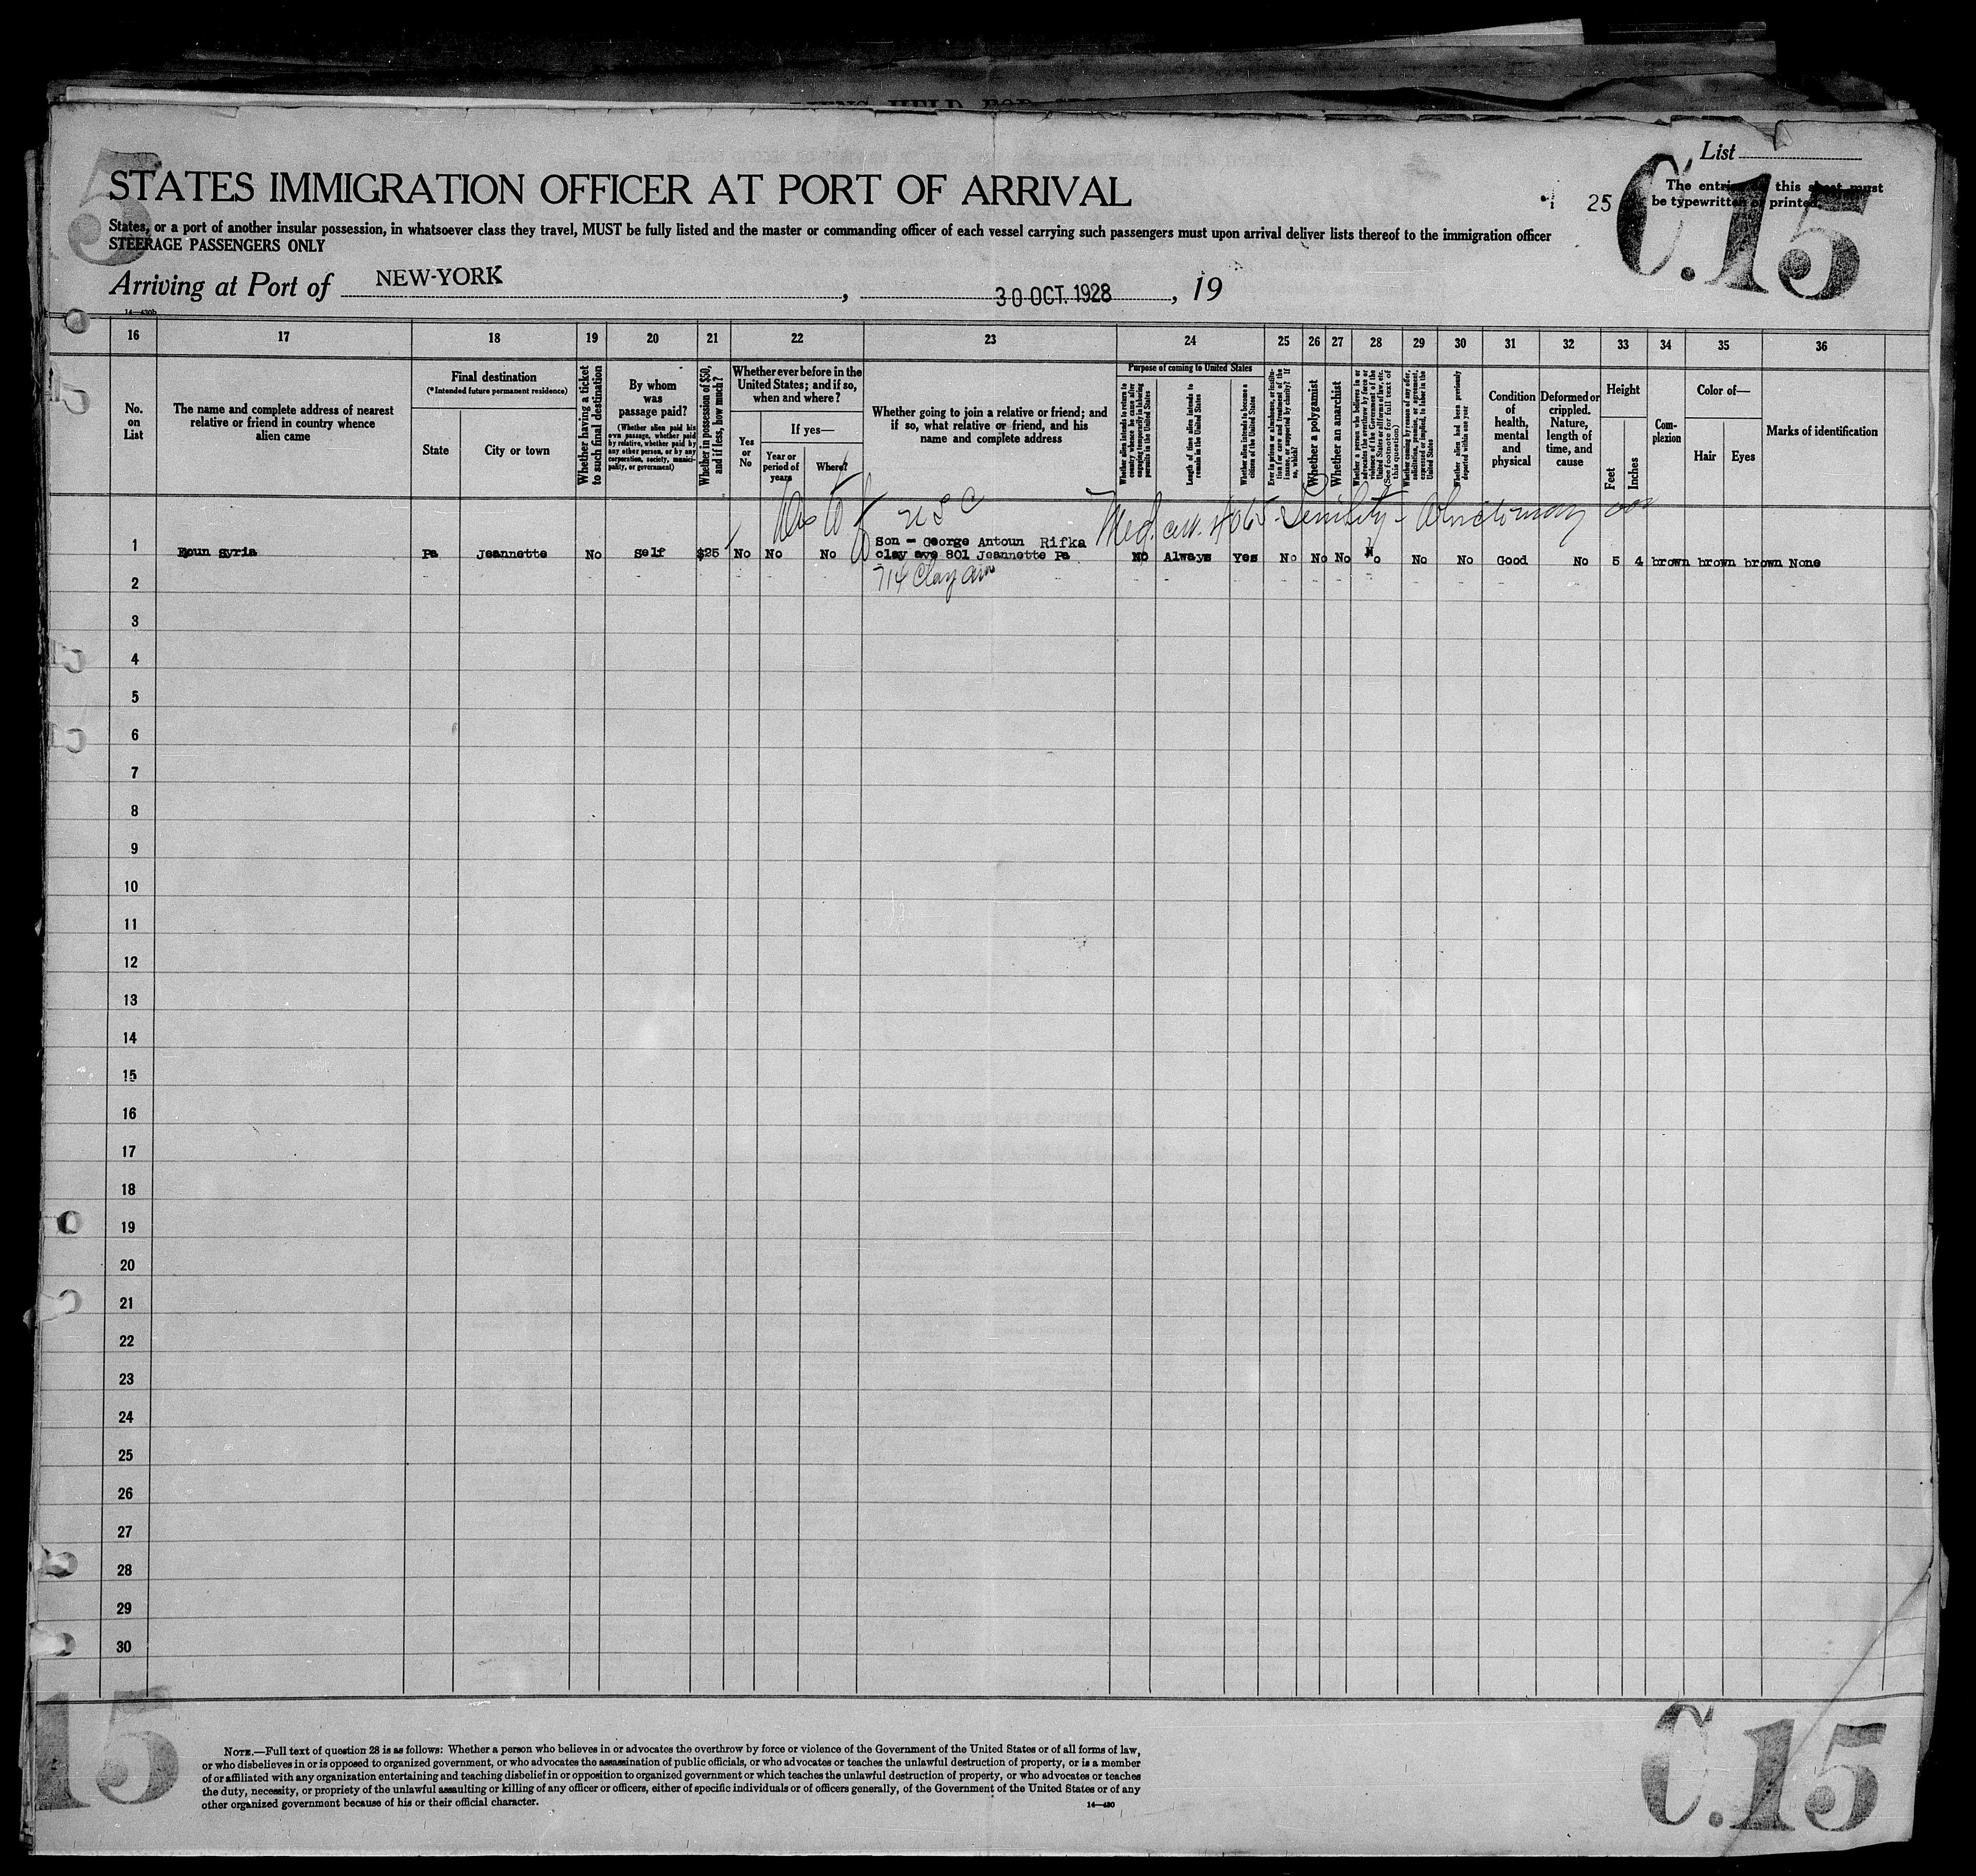 List
C.15
15
STATES IMMIGRATION OFFICER AT PORT OF ARRIVAL
25
The entries on this sheet must
be typewritten or printed.
States, or a port of another insular possession, in whatsoever class they travel, MUST be fully listed and the master or commanding officer of each vessel carrying such passengers must upon arrival deliver lists thereof to the immigration officer
STEERAGE PASSENGERS ONLY
Arriving at Port of NEW-YORK, 30 OCT. 1928, 19
14—430b
16 17 18 19 20 21 22 23 24 25 26 27 28 29 30 31 32 33 34 35 36
No. on List
The name and complete address of nearest relative or friend in country whence alien came
Final destination
(*Intended future permanent residence)
State
City or town
Whether having a ticket to such final destination
By whom was passage paid?
(Whether alien paid his own passage, whether paid by relative, whether paid by any other person, or by any corporation, society, municipality, or government)
Whether in possession of $50, and if less, how much?
Whether ever before in the United States; and if so, when and where?
Yes or No
If yes—
Year or period of years
Where?
Whether going to join a relative or friend; and if so, what relative or friend, and his name and complete address
Purpose of coming to United States
Whether alien intends to return to country whence he came after engaging temporarily in laboring pursuits in the United States
Length of time alien intends to remain in the United States
Whether alien intends to become a citizen of the United States
Ever in prison or almshouse, or institution for care and treatment of the insane, or supported by charity? If so, which?
Whether a polygamist
Whether an anarchist
Whether a person who believes in or advocates the overthrow by force or violence of the Government of the United States or all forms of law, etc. (See footnote for full text of this question)
Whether coming by reason of any offer, solicitation, promise, or agreement, expressed or implied, to labor in the United States
Whether alien had been previously deported within one year
Condition of health, mental and physical
Deformed or crippled. Nature, length of time, and cause
Height
Feet
Inches
Complexion
Color of—
Hair
Eyes
Marks of identification
USC
Med. cert. Senility
1 Eoun syria Pa Jeannette No Self $25 No No No Son - George Antoun Rifka
clay ave 801 Jeannette Pa NO Always Yes No No No No No No Good No 5 4 brown brown brown None
714 Clay Ave
2
3
4
5
6
7
8
9
10
11
12
13
14
15
16
17
18
19
20
21
22
23
24
25
26
27
28
29
30
15
C.15
NOTE.—Full text of question 28 is as follows: Whether a person who believes in or advocates the overthrow by force or violence of the Government of the United States or of all forms of law,
or who disbelieves in or is opposed to organized government, or who advocates the assassination of public officials, or who advocates or teaches the unlawful destruction of property, or is a member
of or affiliated with any organization entertaining and teaching disbelief in or opposition to organized government or which teaches the unlawful destruction of property, or who advocates or teaches
the duty, necessity, or propriety of the unlawful assaulting or killing of any officer or officers, either of specific individuals or of officers generally, of the Government of the United States or of any
other organized government because of his or their official character.
14—430